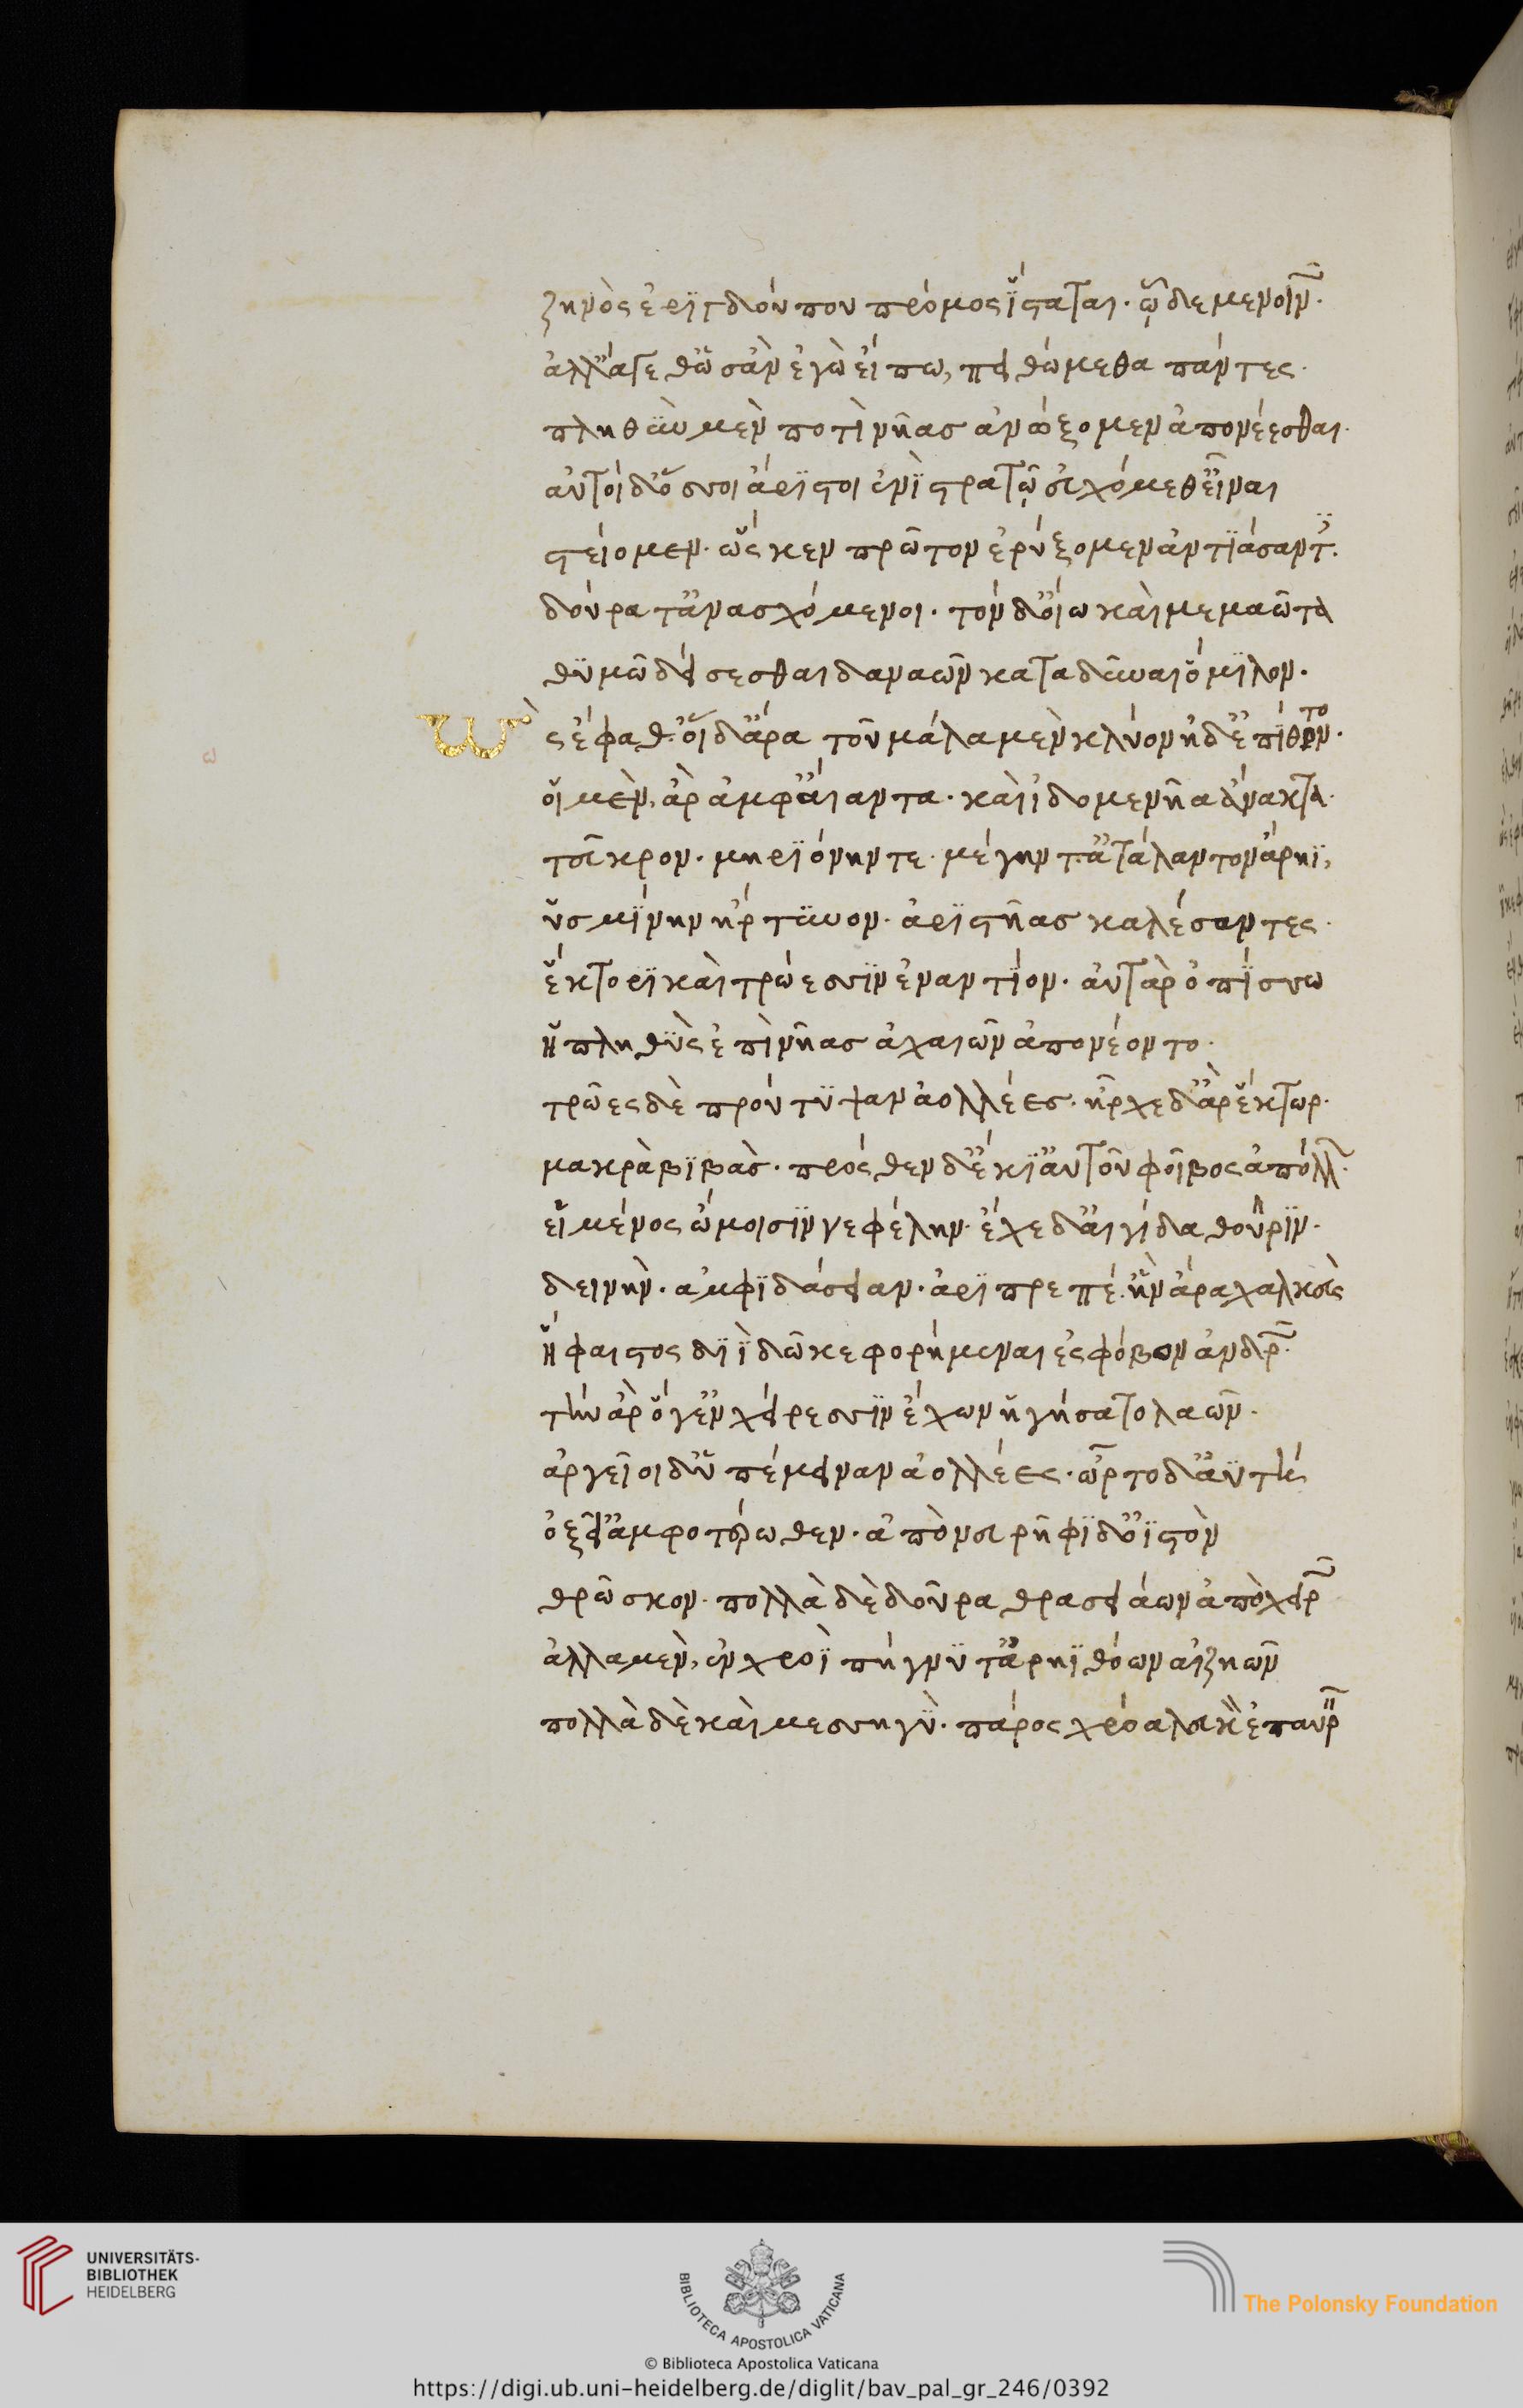 ζηνὸς ἐριγδούπου πρόμος ἵσταται. ὧδε μενοινῶν.
ἀλλ' ἄγεθ' ὡς ἂν ἐγὼ εἴπω, πειθώμεθα πάντες.
πληθὺν μὲν ποτὶ νῆας ἀνώξομεν ἀπονέεσθαι.
αὐτοὶ δ' ὅσσοι ἄριστοι ἐνὶ στρατῷ εὐχόμεθ' εἶναι
στείομεν. ὥς κεν πρῶτον ἐρύξομεν ἀντιάσαντες.
δούρατ' ἀνασχόμενοι. τὸν δ' οἴω καὶ μεμαῶτα
θυμῶ δείσεσθαι δαναῶν καταδῦναι ὅμιλον.
Ὣς ἔφαθ'. οἱ δ' ἄρα τοῦ μάλα μὲν κλύον ἠδὲ πίθοντο.
οἱ μὲν, ἀρ' ἀμφ' αἴαντα. καὶ ἰδομενῆα ἄνακτα.
τεῦκρον. μηριόνην τε. μέγην τ' ἀτάλαντον ἄρηι,
ὑσμίνην ἤρτυνον. ἀριστῆας καλέσαντες.
ἕκτορι καὶ τρώεσσιν ἐναντίον. αὐτὰρ ὀπίσσω
ἡ πληθὺς ἐπὶ νῆας ἀχαιῶν ἀπονέοντο.
τρῶες δὲ προύτυψαν ἀολλέες. ἦρχε δ' ἄρ' ἕκτωρ.
μακρὰ βιβάς. πρόσθεν δ' ἔκι' αὐτοῦ φοῖβος ἀπόλλων.
εἱμένος ὤμοισιν νεφέλην. ἔχε δ' αἰγίδα θοῦριν.
δεινὴν. ἀμφιδάσειαν. ἀριπρεπέ'. ἣν ἄρα χαλκεὺς
ἥφαιστος διὶ δῶκε φορήμεναι ἐς φόβον ἀνδρῶν.
τὴν ἀρ' ὅγ' ἐν χείρεσσιν ἔχων ἡγήσατο λαῶν.
ἀργεῖοι δ' ὑπέμειναν ἀολλέες. ὦρτο δ' ἀϋτὴ
ὀξεῖ' ἀμφοτέρωθεν. ἀπὸ νευρῆφι δ' ὀϊστοὶ
θρῶσκον. πολλὰ δὲ δοῦρα θρασειάων ἀπὸ χειρῶν
ἄλλα μὲν, ἐν χροῒ πήγνυτ' ἀρηϊθόων αἰζηῶν
πολλὰ δὲ καὶ μεσσηγὺ. πάρος χρόα λευκὸν ἐπαυρεῖν
UNIVERSITÄTS-
BIBLIOTHEK
HEIDELBERG
BIBLIOTECA APOSTOLICA VATICANA
The Polonsky Foundation
© Biblioteca Apostolica Vaticana
https://digi.ub.uni-heidelberg.de/diglit/bav_pal_gr_246/0392